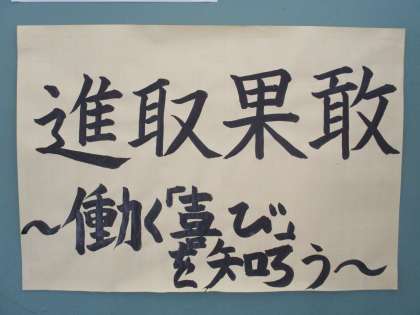 進取果敢
～働く「喜び」
を知ろう～